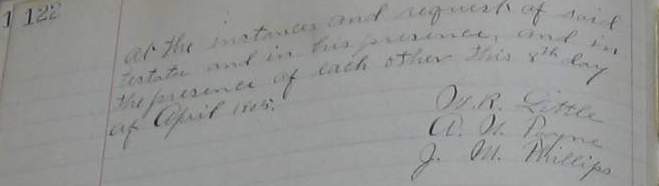 122
at the instances and request of said
testator and in his presence, and in
the presence of each other this 8th day
of April 1905.
W. R. Little
A. W. Payne
J. M. Phillips